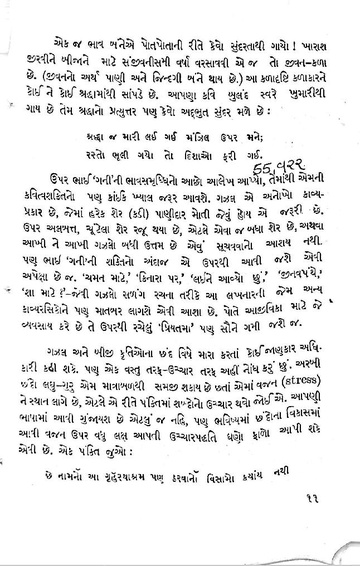 એક જ ભાવ બંનેએ પોતપોતાની રીતે કેવો સુંદરતાથી ગાયો! ખારાશ
જીરવીને બીજાને માટે સંજીવનીસમી વર્ષા વરસાવવી એ જ તો જીવન-કળા
છે. (જીવનનો અર્થ પાણી અને જિન્દગી બંને થાય છે.) આ કળાદૃષ્ટિ કલાકારને
કોઈ ને કોઈ શ્રદ્ધામાંથી સાંપડે છે. આપણા કવિ બુલંદ સ્વરે ખુમારીથી
ગાય છે તેમ શ્રદ્ધાનો પ્રત્યુત્તર પણ કેવો અદ્ભુત સુંદર મળે છે :
શ્રદ્ધા જ મારી લઈ ગઈ મંઝિલ ઉપર મને;
રસ્તો ભૂલી ગયો તો દિશાઓ ફરી ગઈ.
ઉપર ભાઈ ‘ગની’ની ભાવસમૃદ્ધિનો આછો આલેખ આપ્યો, તેમાંથી એમની
કવિત્વશક્તિનો પણ કાંઈક ખ્યાલ જરૂર આવશે. ગઝલ એ અનોખો કાવ્ય-
પ્રકાર છે, જેમાં હરેક શેર (કડી) પાણીદાર મોતી જેવું હોય એ જરૂરી છે.
ઉપર અલબત્ત, ચૂંટેલા શેર રજૂ થયા છે, એટલે એવા જ બધા શેર છે, અથવા
આખી ને આખી ગઝલો બધી ઉત્તમ છે એવું સૂચવવાનો આશય નથી.
પણ ભાઈ ‘ગની’ની શક્તિનો અંદાજ એ ઉપરથી આવી જશે એવી
અપેક્ષા છે જ. ‘ચમન માટે,’ ‘કિનારા પર,’ ‘લઈને આવ્યો છું,’ ‘જીવનપંથે,’
‘શા માટે ?’–જેવી ગઝલો સળંગ રચના તરીકે આ લખનારની જેમ અન્ય
કાવ્યરસિકોને પણ માતબર લાગશે એવી આશા છે. પોતે આજીવિકા માટે જે
વ્યવસાય કરે છે તે ઉપરથી રચેલું ‘પ્રિયતમા’ પણ સૌને ગમી જશે જ.
ગઝલ અને બીજી કૃતિઓના છંદ વિષે મારા કરતાં કોઈ જાણકાર અધિ-
કારી કહી શકે. પણ એક વસ્તુ તરફ-ઉચ્ચાર તરફ અહીં નોંધ કરું છું. અરબી
છંદો લઘુ-ગુરુ એમ માત્રાબળથી સમજી શકાય છે છતાં એમાં વજન (stress)
ને સ્થાન લાગે છે. એટલે એ રીતે પંક્તિમાં શબ્દોનો ઉચ્ચાર થવો જોઈએ. આપણી
ભાષામાં આવી ગુંજાયશ છે એટલું જ નહિ, પણ ભવિષ્યમાં છંદોના વિકાસમાં
આવી વજન ઉપર વધુ લક્ષ આપતી ઉચ્ચારપદ્ધતિ ઘણો ફાળો આપી શકે
એવી છે. એક પંક્તિ જુઓ :
છે નામનો આ ગૃહસ્થાશ્રમ પણ ઠરવાનો વિસામો ક્યાંય નથી
૧૩